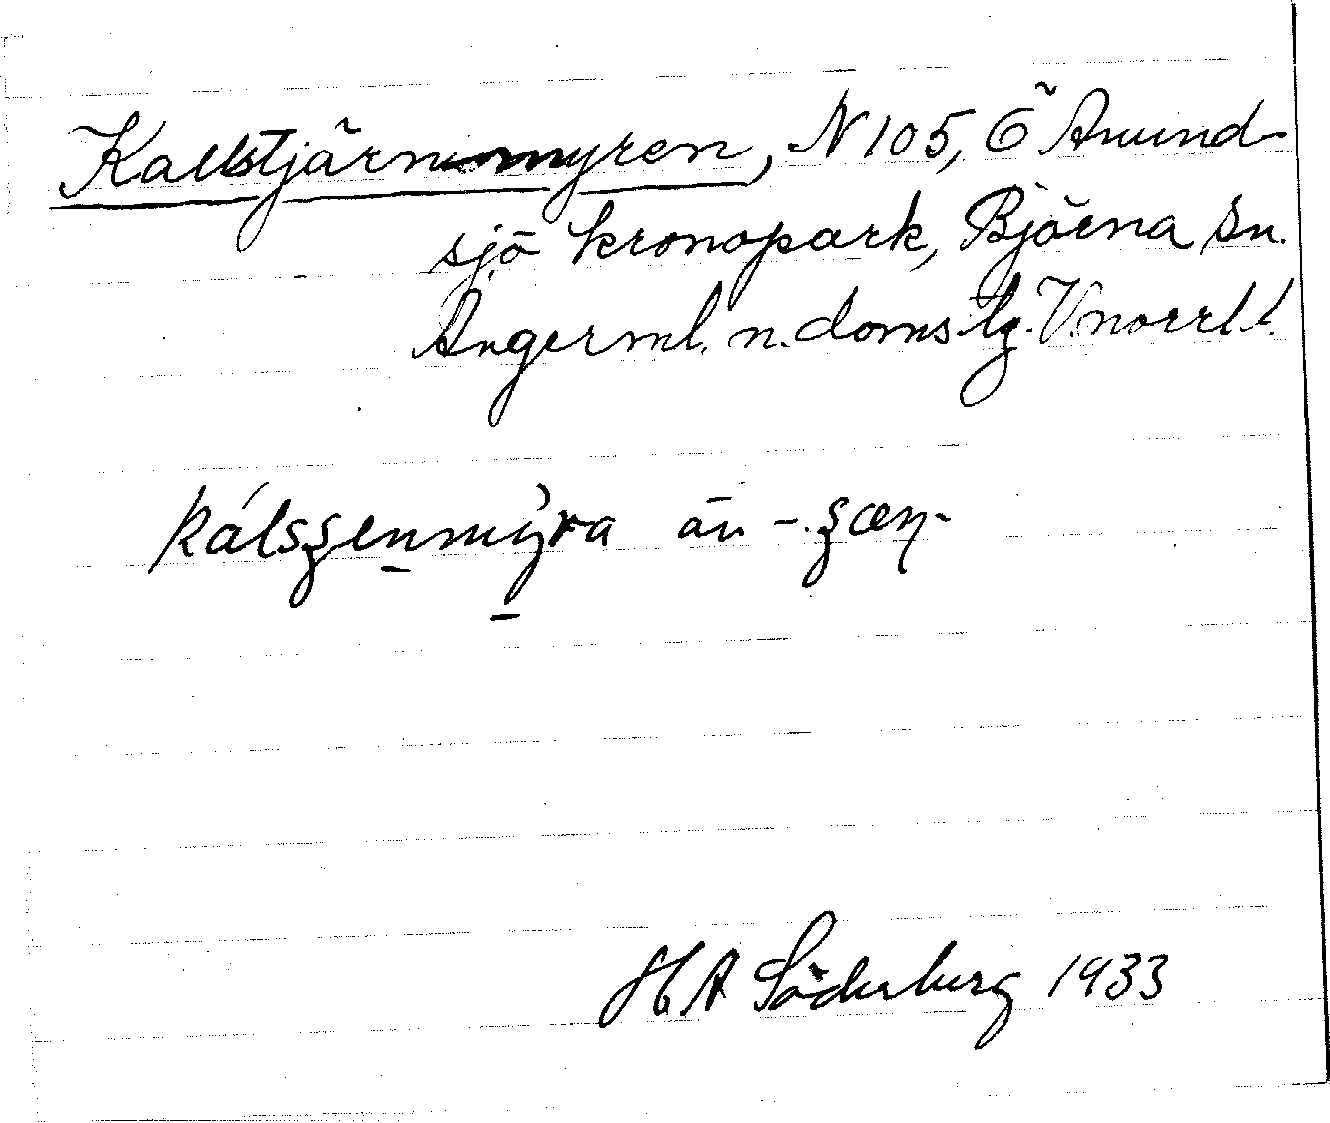 Kallstjärnmyren, N 105, Ö Amund-
sjö kronopark, Björna sn.
Ångerml. n. doms.lg. V.norrl.l.
kálsʒenmỳra än -ʒæn-
H A Söderberg 1933